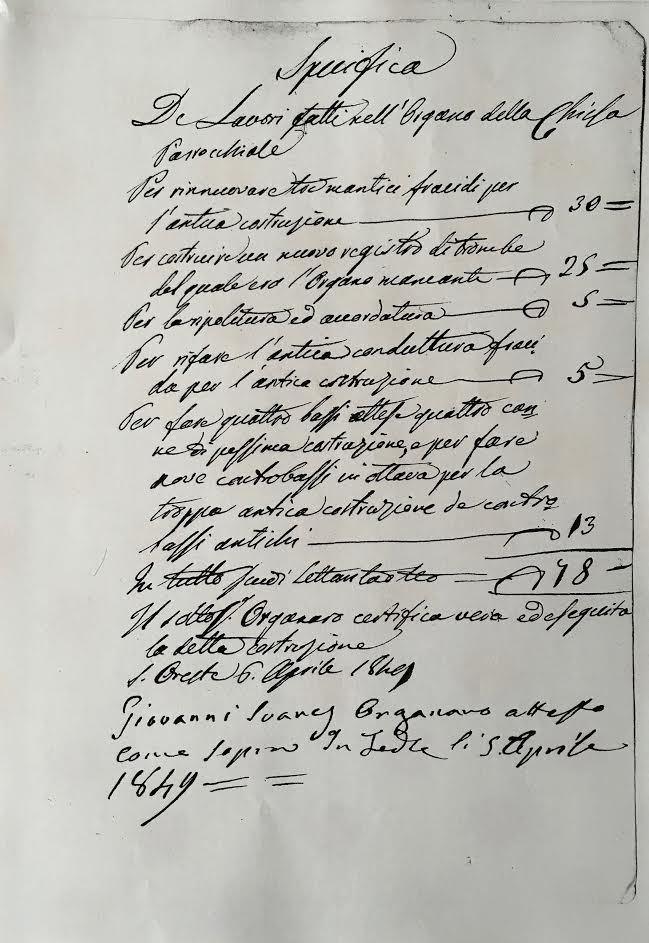 Specifica
De Lavori fatti nell'Organo della Chiesa
Parrochiale
Per rinnuovare tre mantici fracidi per
l'antica costruzione 30 =
Per costruire un nuovo registro di trombe
del quale era l'Organo mancante 25 =
Per la ripolitura ed accordatura 5 =
Per rifare l'antica conduttura fraci
da per l'antica costruzione 5 =
Per fare quattro bassi attese quattro can
ne di pessima costruzione, e per fare
nove controbassi in ottava per la
troppo antica costruzione de contro
bassi antichi 13
In tutto scudi settantaotto = 78 =
Il sottos. Organaro certifica vera ed eseguita
la detta costruzione
S. Oreste 6. Aprile 1849
Giovanni Organaro attesto
come sopra In fede li 5. Aprile
1849 = =